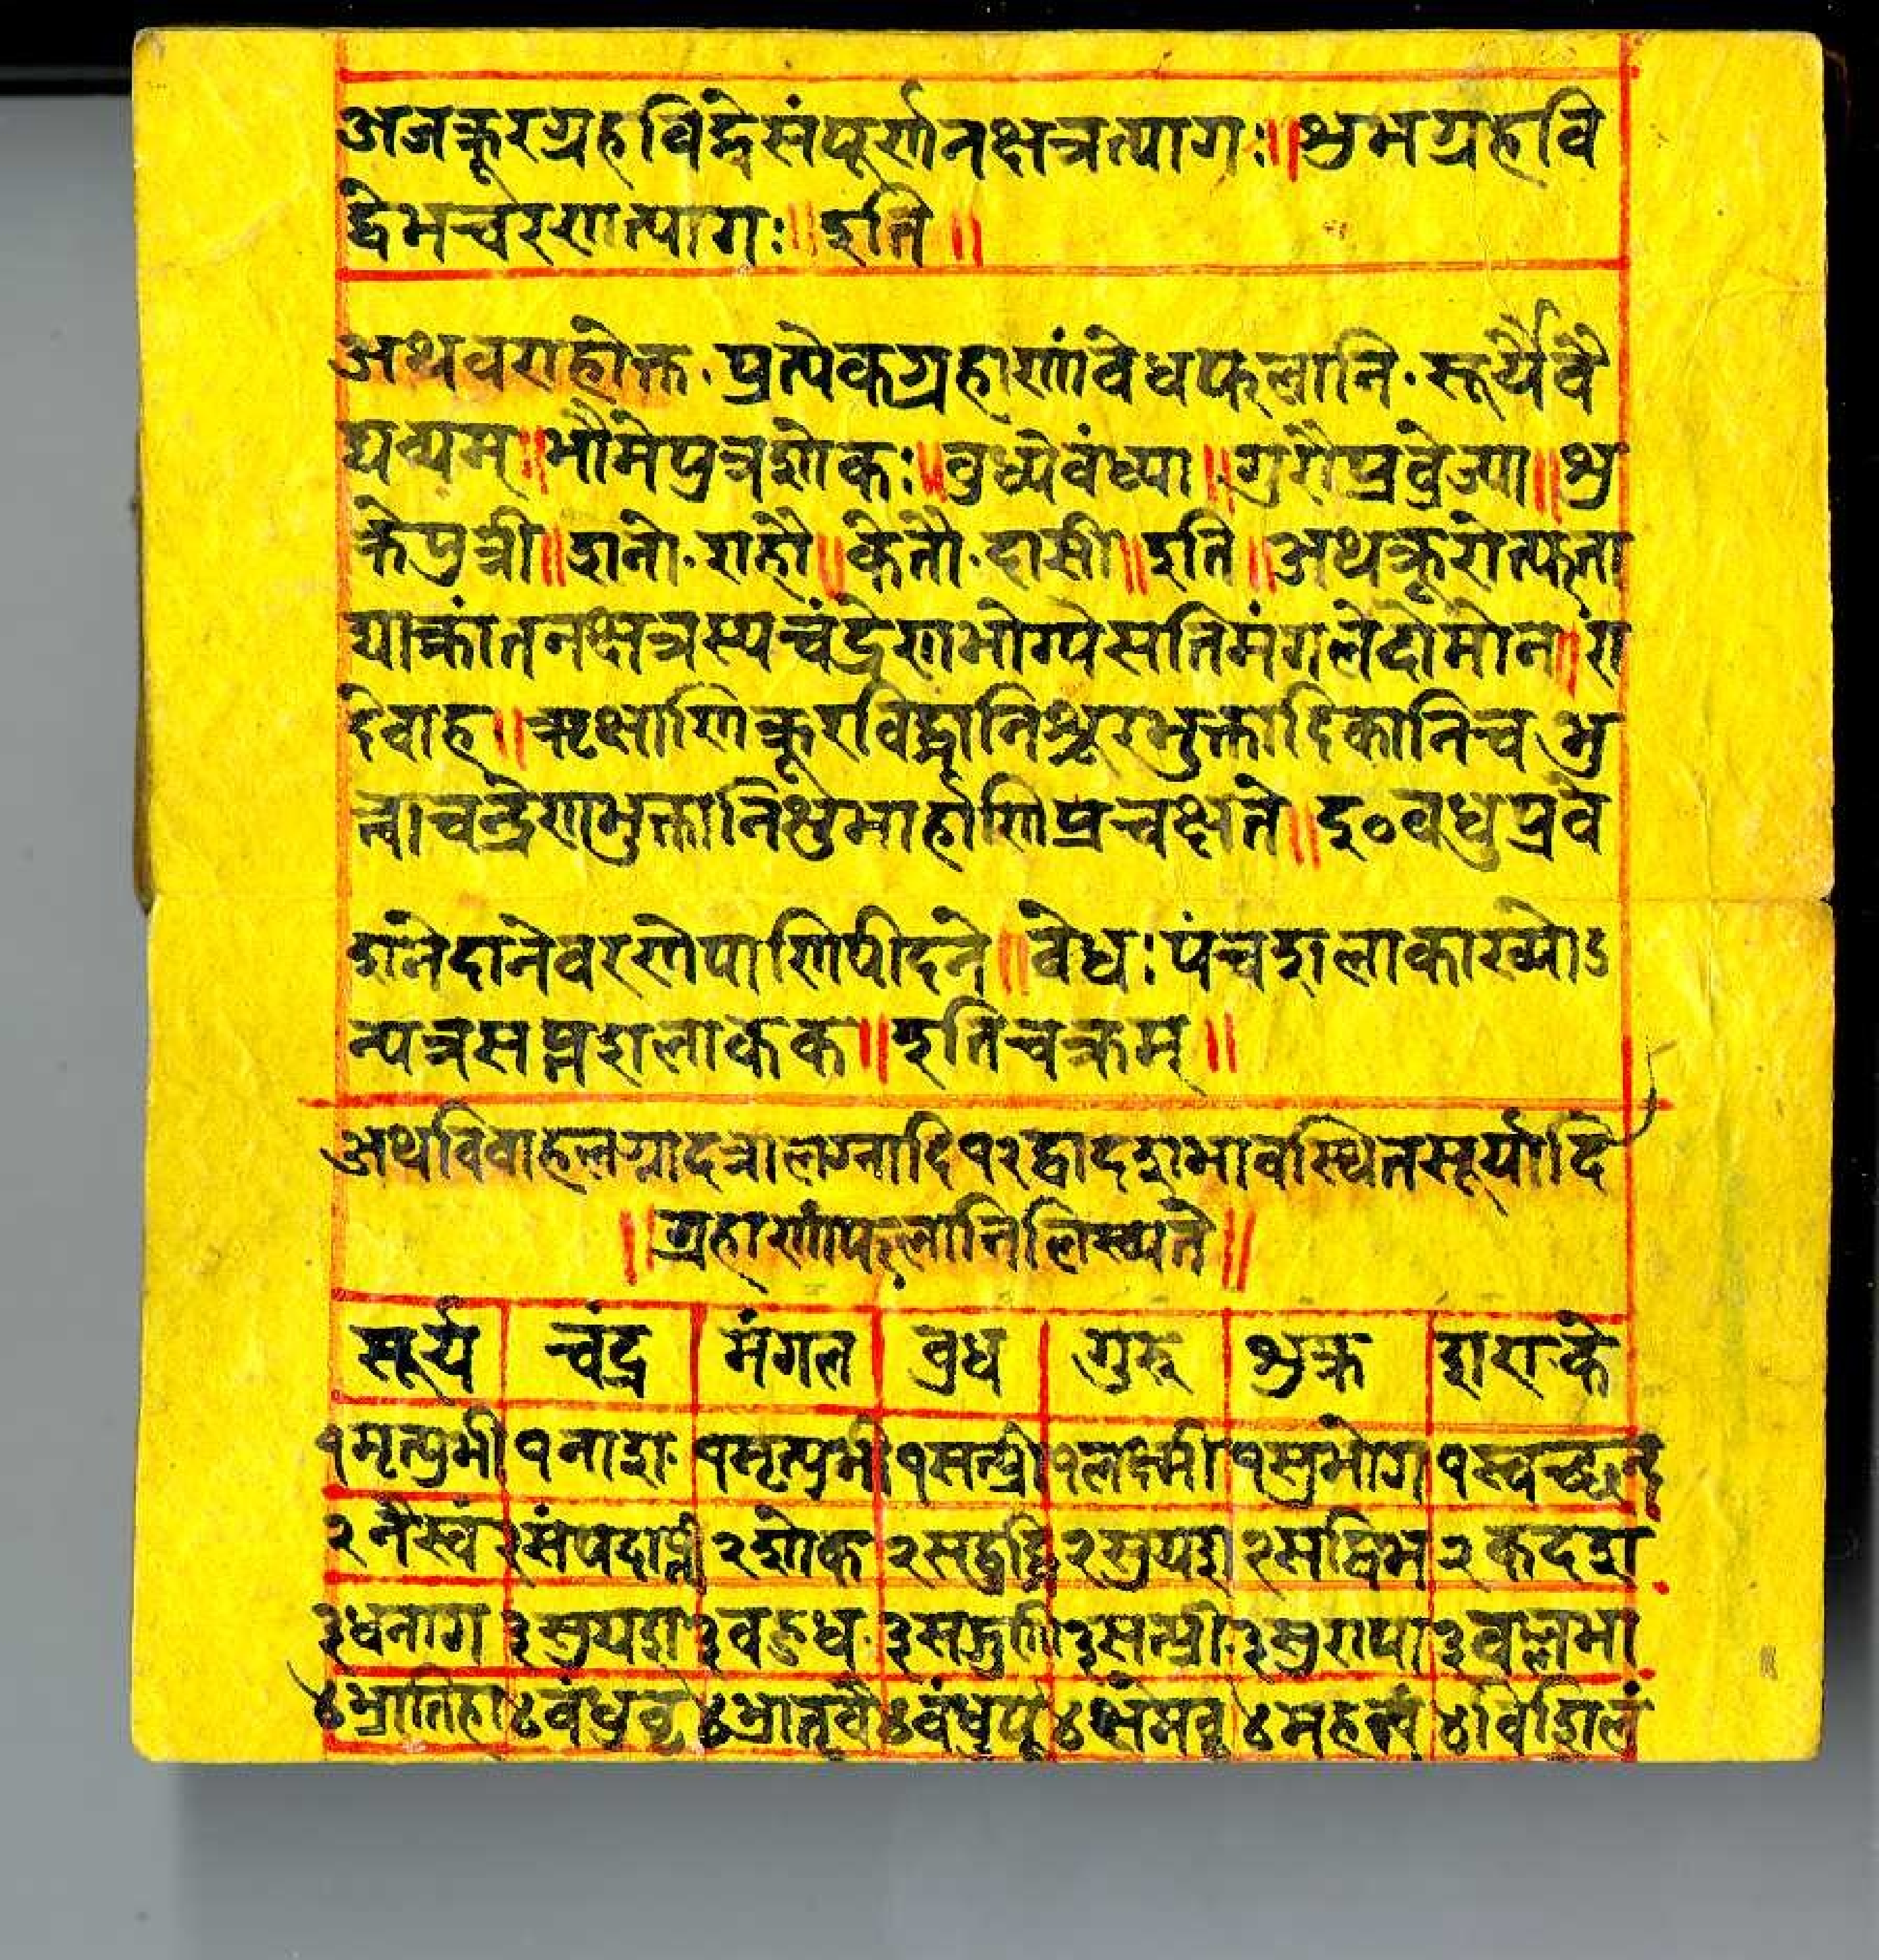 अजक्रूरग्रहविद्धेसंपूर्णनक्षत्रत्यागः॥शुभग्रहवि
द्धेभचरणत्यागः॥इति॥
अथवराहोक्त.प्रत्येकग्रहाणांवेधफलानि.सूर्यैवै
द्यव्यम्॥भौमेपुत्रशोकः॥वुध्येवंध्या॥गुरौप्रव्रेज्या॥शु
क्रेपुत्री॥शनो.राहौ॥केतौ.दासी॥इति॥अथक्रूरोत्फता
द्याक्रांतनक्षत्रस्यचंद्रेणभोग्येसतिमंगलेदोमोन॥रा
देवाह॥ऋक्षाणिक्रूरविद्धानिश्रूरभुक्तादिकानिच भु
त्काचन्द्रेणभुक्तानिशुमार्हाणिप्रचक्षते॥इ०वधुप्रवे
शनेदानेवरणेपाणिपीदने॥वेधःपंचशलाकाख्योऽ
न्यत्रसप्तशलाकक॥इतिचक्रम्॥
अथविवाहलग्नादत्रालग्नादि१२द्वादशभावस्थितसूर्यादि
॥ग्रहाणांफलानिलिख्यते॥
सूर्य चंद्र मंगल वुध गुरू शुक्र श.रा.के
१मृत्युभी १नाश. १मृत्युभी १सत्पुत्री १लक्ष्मी १सुभोग १स्वच्छन्द
२नैस्वं २संपदा २शोक २सद्बुद्धि २सुयश २सद्विभ २कदश
३धनाग ३सुयश ३वडध. ३सद्गुणी ३सत्पुत्री. ३सुरापा ३वल्लभा
४भ्रातिहा ४वंधुवृ ४भ्रातृवै ४वंधुपू ४क्षेमवृ ४महत्वं ४विशिलं